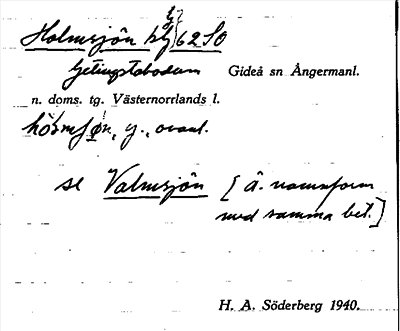 Holmsjön 62 SO
Getingstabodum Gideå sn Ångermanl.
n. doms. tg. Västernorrlands l.
y., ovanl.
se Valmsjön [ä. namnform
med samma bet.]
H. A. Söderberg 1940.